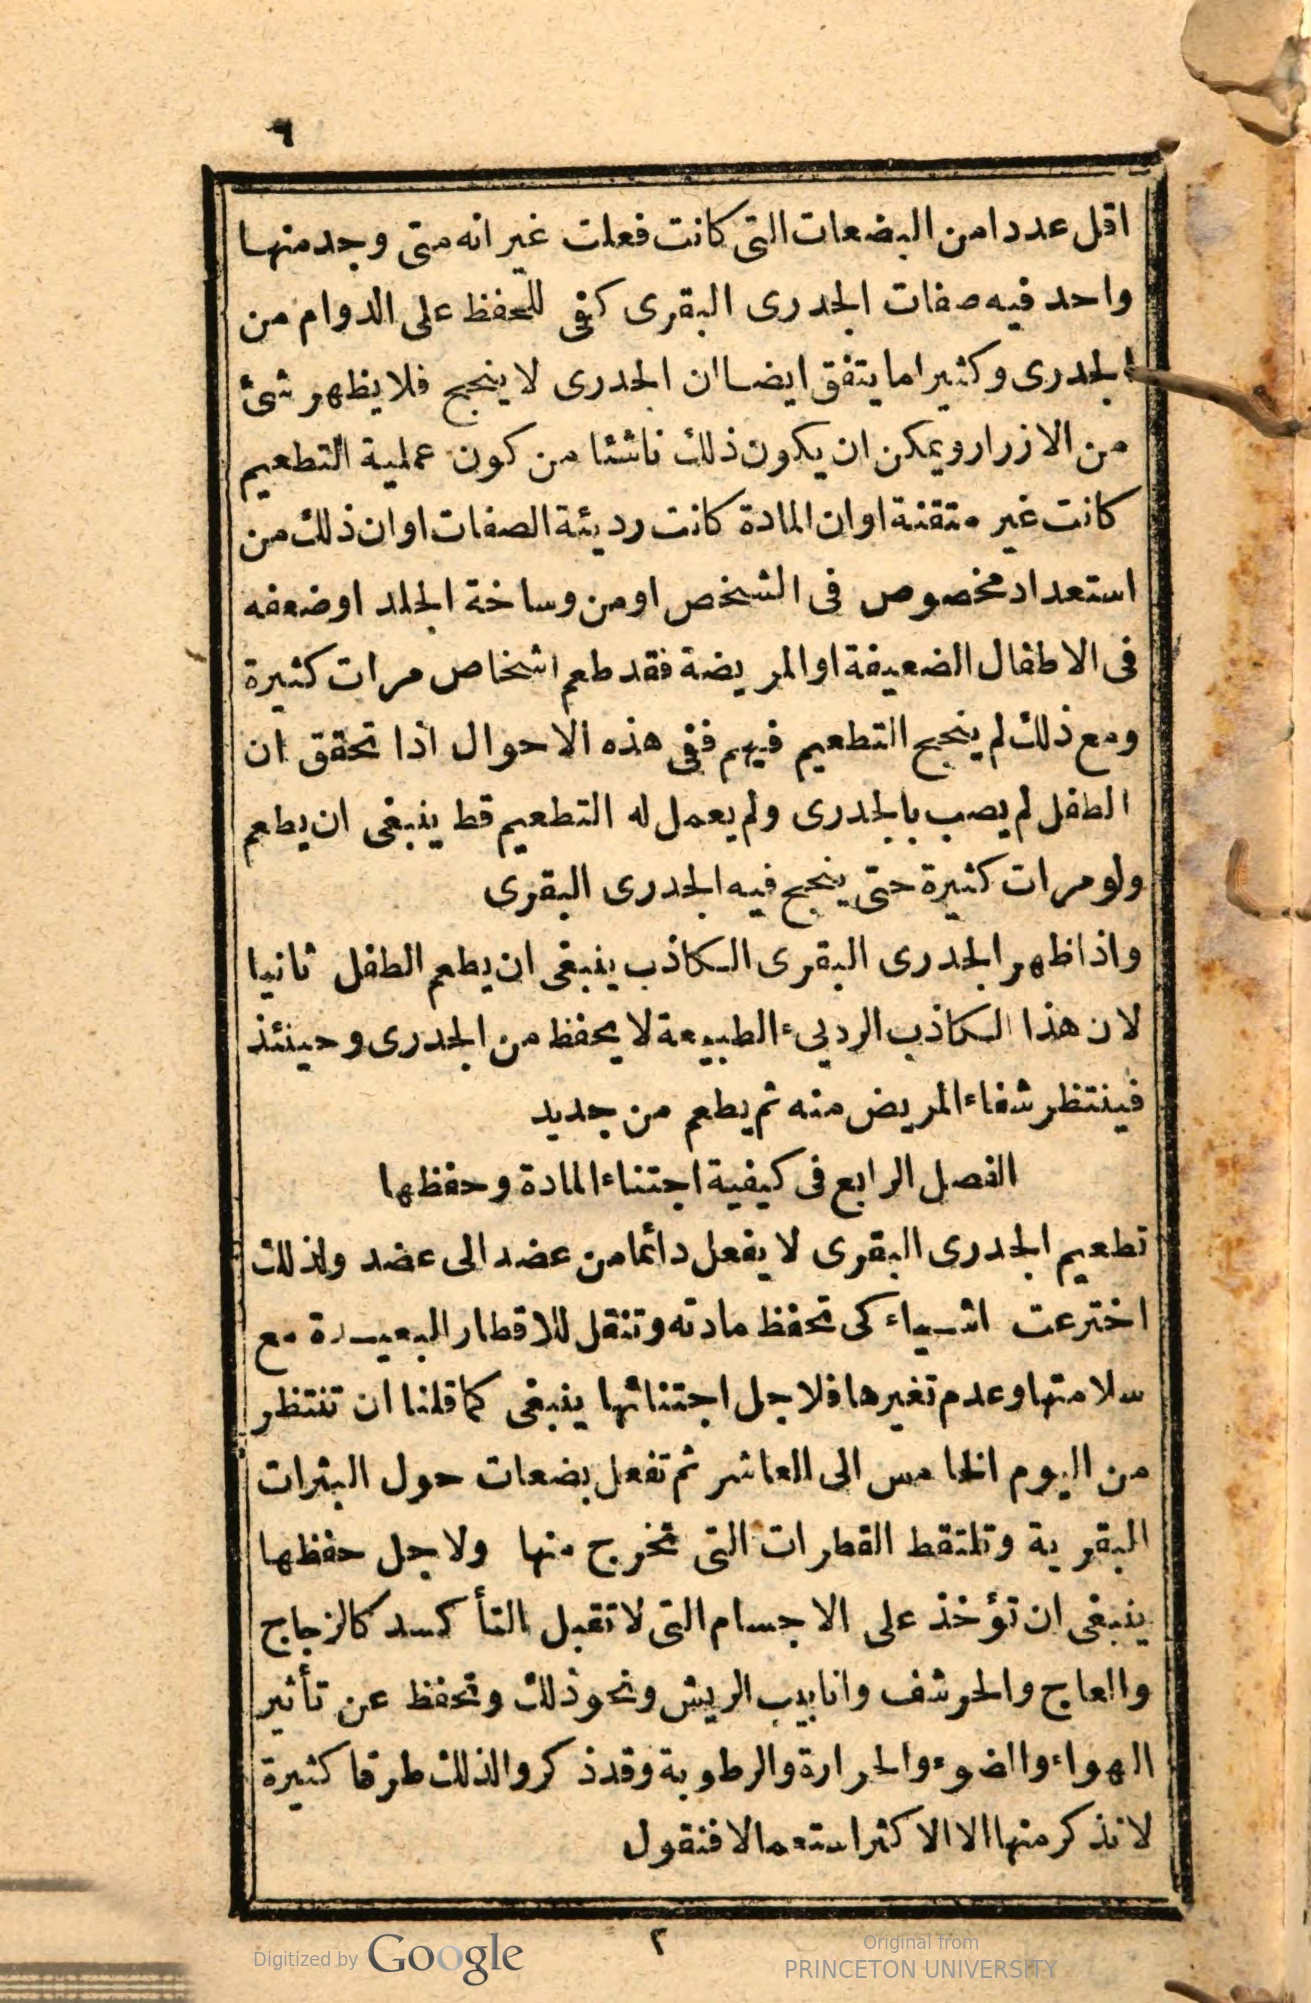 ٦
اقل عددا من البضعات التى كانت فعلت غير انه متى وجد منها
واحد فيه صفات الجدرى البقرى كفى للتحفظ على الدوام من
الجدرى وكثيرا ما يتفق ايضا ان الجدرى لا ينجح فلا يظهر شئ
من الازرار ويمكن ان يكون ذلك ناشئا من كون عملية التطعيم
كانت غير متقنة او ان المادة كانت رديئة الصفات او ان ذلك من
استعداد مخصوص فى الشخص او من وساخة الجلد او ضعفه
فى الاطفال الضعيفة او المريضة فقد طعم اشخاص مرات كثيرة
ومع ذلك لم ينجح التطعيم فيهم ففى هذه الاحوال اذا تحقق ان
الطفل لم يصب بالجدرى ولم يعمل له التطعيم قط ينبغى ان يطعم
ولو مرات كثيرة حتى ينجح فيه الجدرى البقرى
واذا ظهر الجدرى البقرى الكاذب ينبغى ان يطعم الطفل ثانيا
لان هذا الكاذب الردىء الطبيعة لا يحفظ من الجدرى وحينئذ
فينتظر شفاء المريض منه ثم يطعم من جديد
الفصل الرابع فى كيفية اجتناء المادة وحفظها
تطعيم الجدرى البقرى لا يفعل دائما من عضد الى عضد ولذلك
اخترعت اشياء كى تحفظ مادته وتنقل للاقطار البعيدة مع
سلامتها وعدم تغيرها فلاجل اجتنائها ينبغى كما قلنا ان تنتظر
من اليوم الخامس الى العاشر ثم تفعل بضعات حول البثرات
البقرية وتلتقط القطرات التى تخرج منها ولاجل حفظها
ينبغى ان تؤخذ على الاجسام التى لا تقبل التأكسد كالزجاج
والعاج والحرشف وانابيب الريش ونحو ذلك وتحفظ عن تأثير
الهواء والضوء والحرارة والرطوبة وقد ذكروا لذلك طرقا كثيرة
لا نذكر منها الا الاكثر استعمالا فنقول
٢
Digitized by Google
Original from
PRINCETON UNIVERSITY